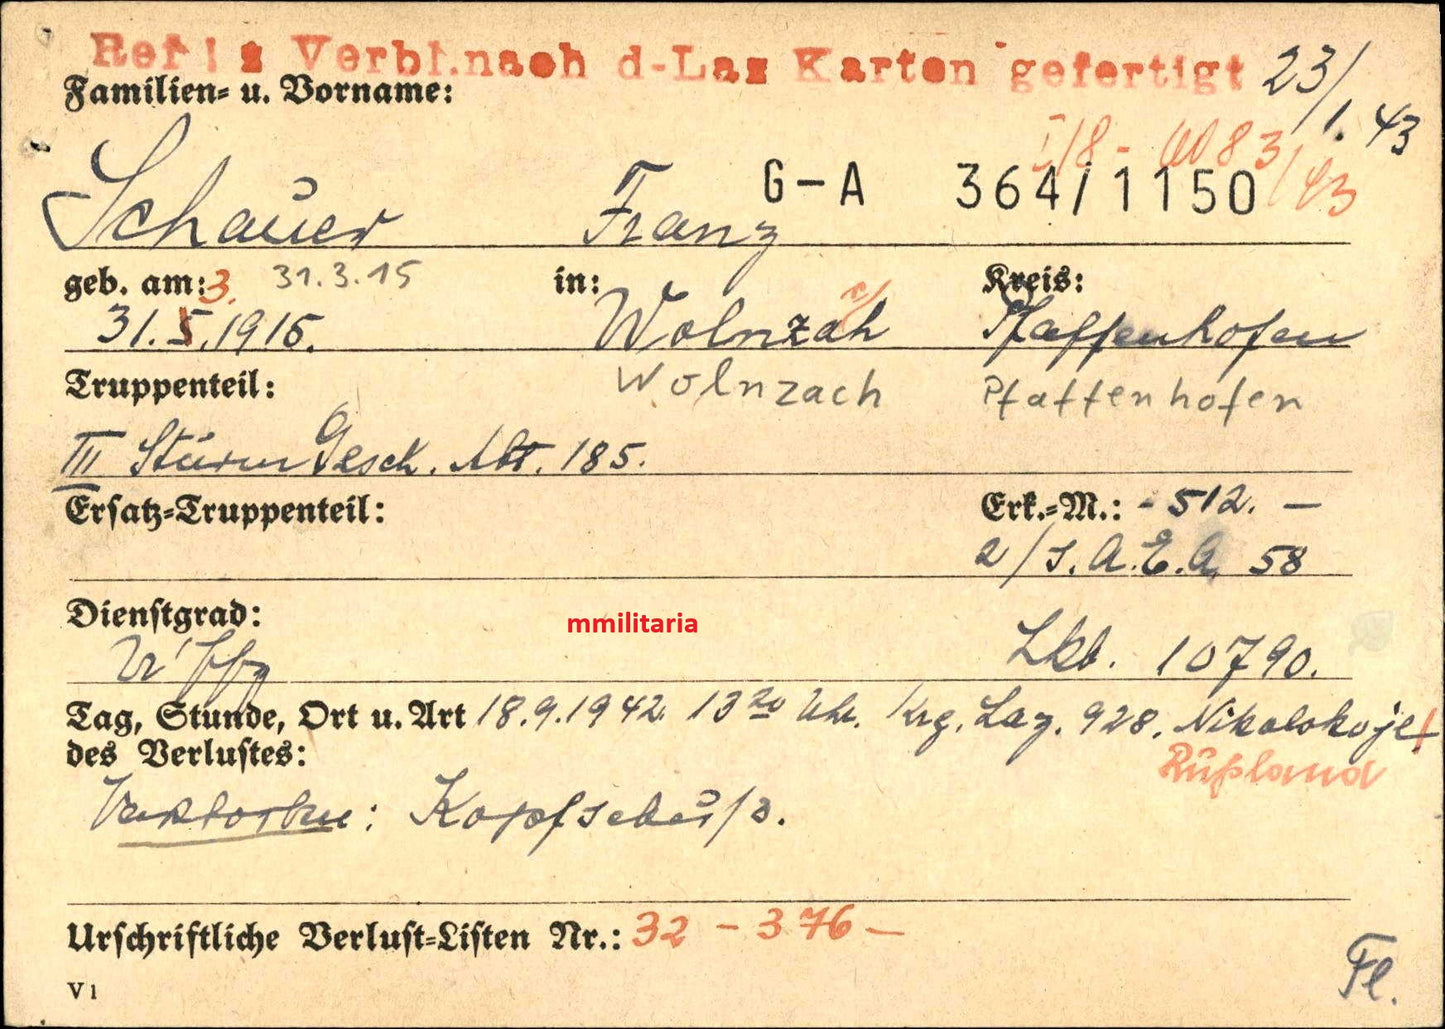 Ref I z Verbl.nach d-Laz Karten gefertigt 23/1. 43
Familien= u. Vorname:
I/8 - 0083/43
G-A 364/1150
Schauer Franz
geb. am: 3. 31.3.15 in: Kreis:
31.5.1915. Wolnzach Pfaffenhofen
Truppenteil: Wolnzach Pfaffenhofen
III Sturm Gesch. Abt. 185.
Ersatz=Truppenteil: Erk.=M.: - 512. -
2/s.A.E.A. 58
Dienstgrad:
mmilitaria
U'ffz Lkb. 10790.
Tag, Stunde, Ort u. Art 18.9.1942. 13 20 Uhr. Krg. Laz. 928. Nikolskoje
des Verlustes: Rußland
Verstorben: Kopfschuß.
Urschriftliche Verlust=Listen Nr.: 32 - 376 -
V 1 Fl.